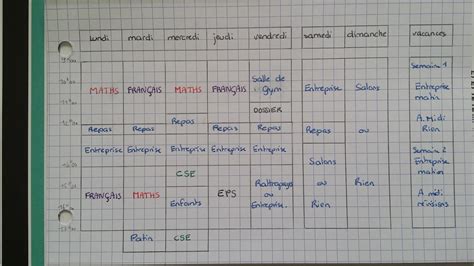 lundi mardi mercredi jeudi vendredi samedi dimanche vacances
Semaine 1
MATHS FRANÇAIS MATHS FRANÇAIS Salle de Gym Entreprise Salons Entreprise matin
DOSSIER
Repas
A. Midi Rien
Repas Repas Repas Repas Repas ou
Entreprise Entreprise Entreprise Entreprise Entreprise Semaine 2
Salons Entreprise
CSE
FRANÇAIS MATHS EPS Rattrapages ou Entreprise. ou Rien
Enfants A midi
Rien
Patin CSE